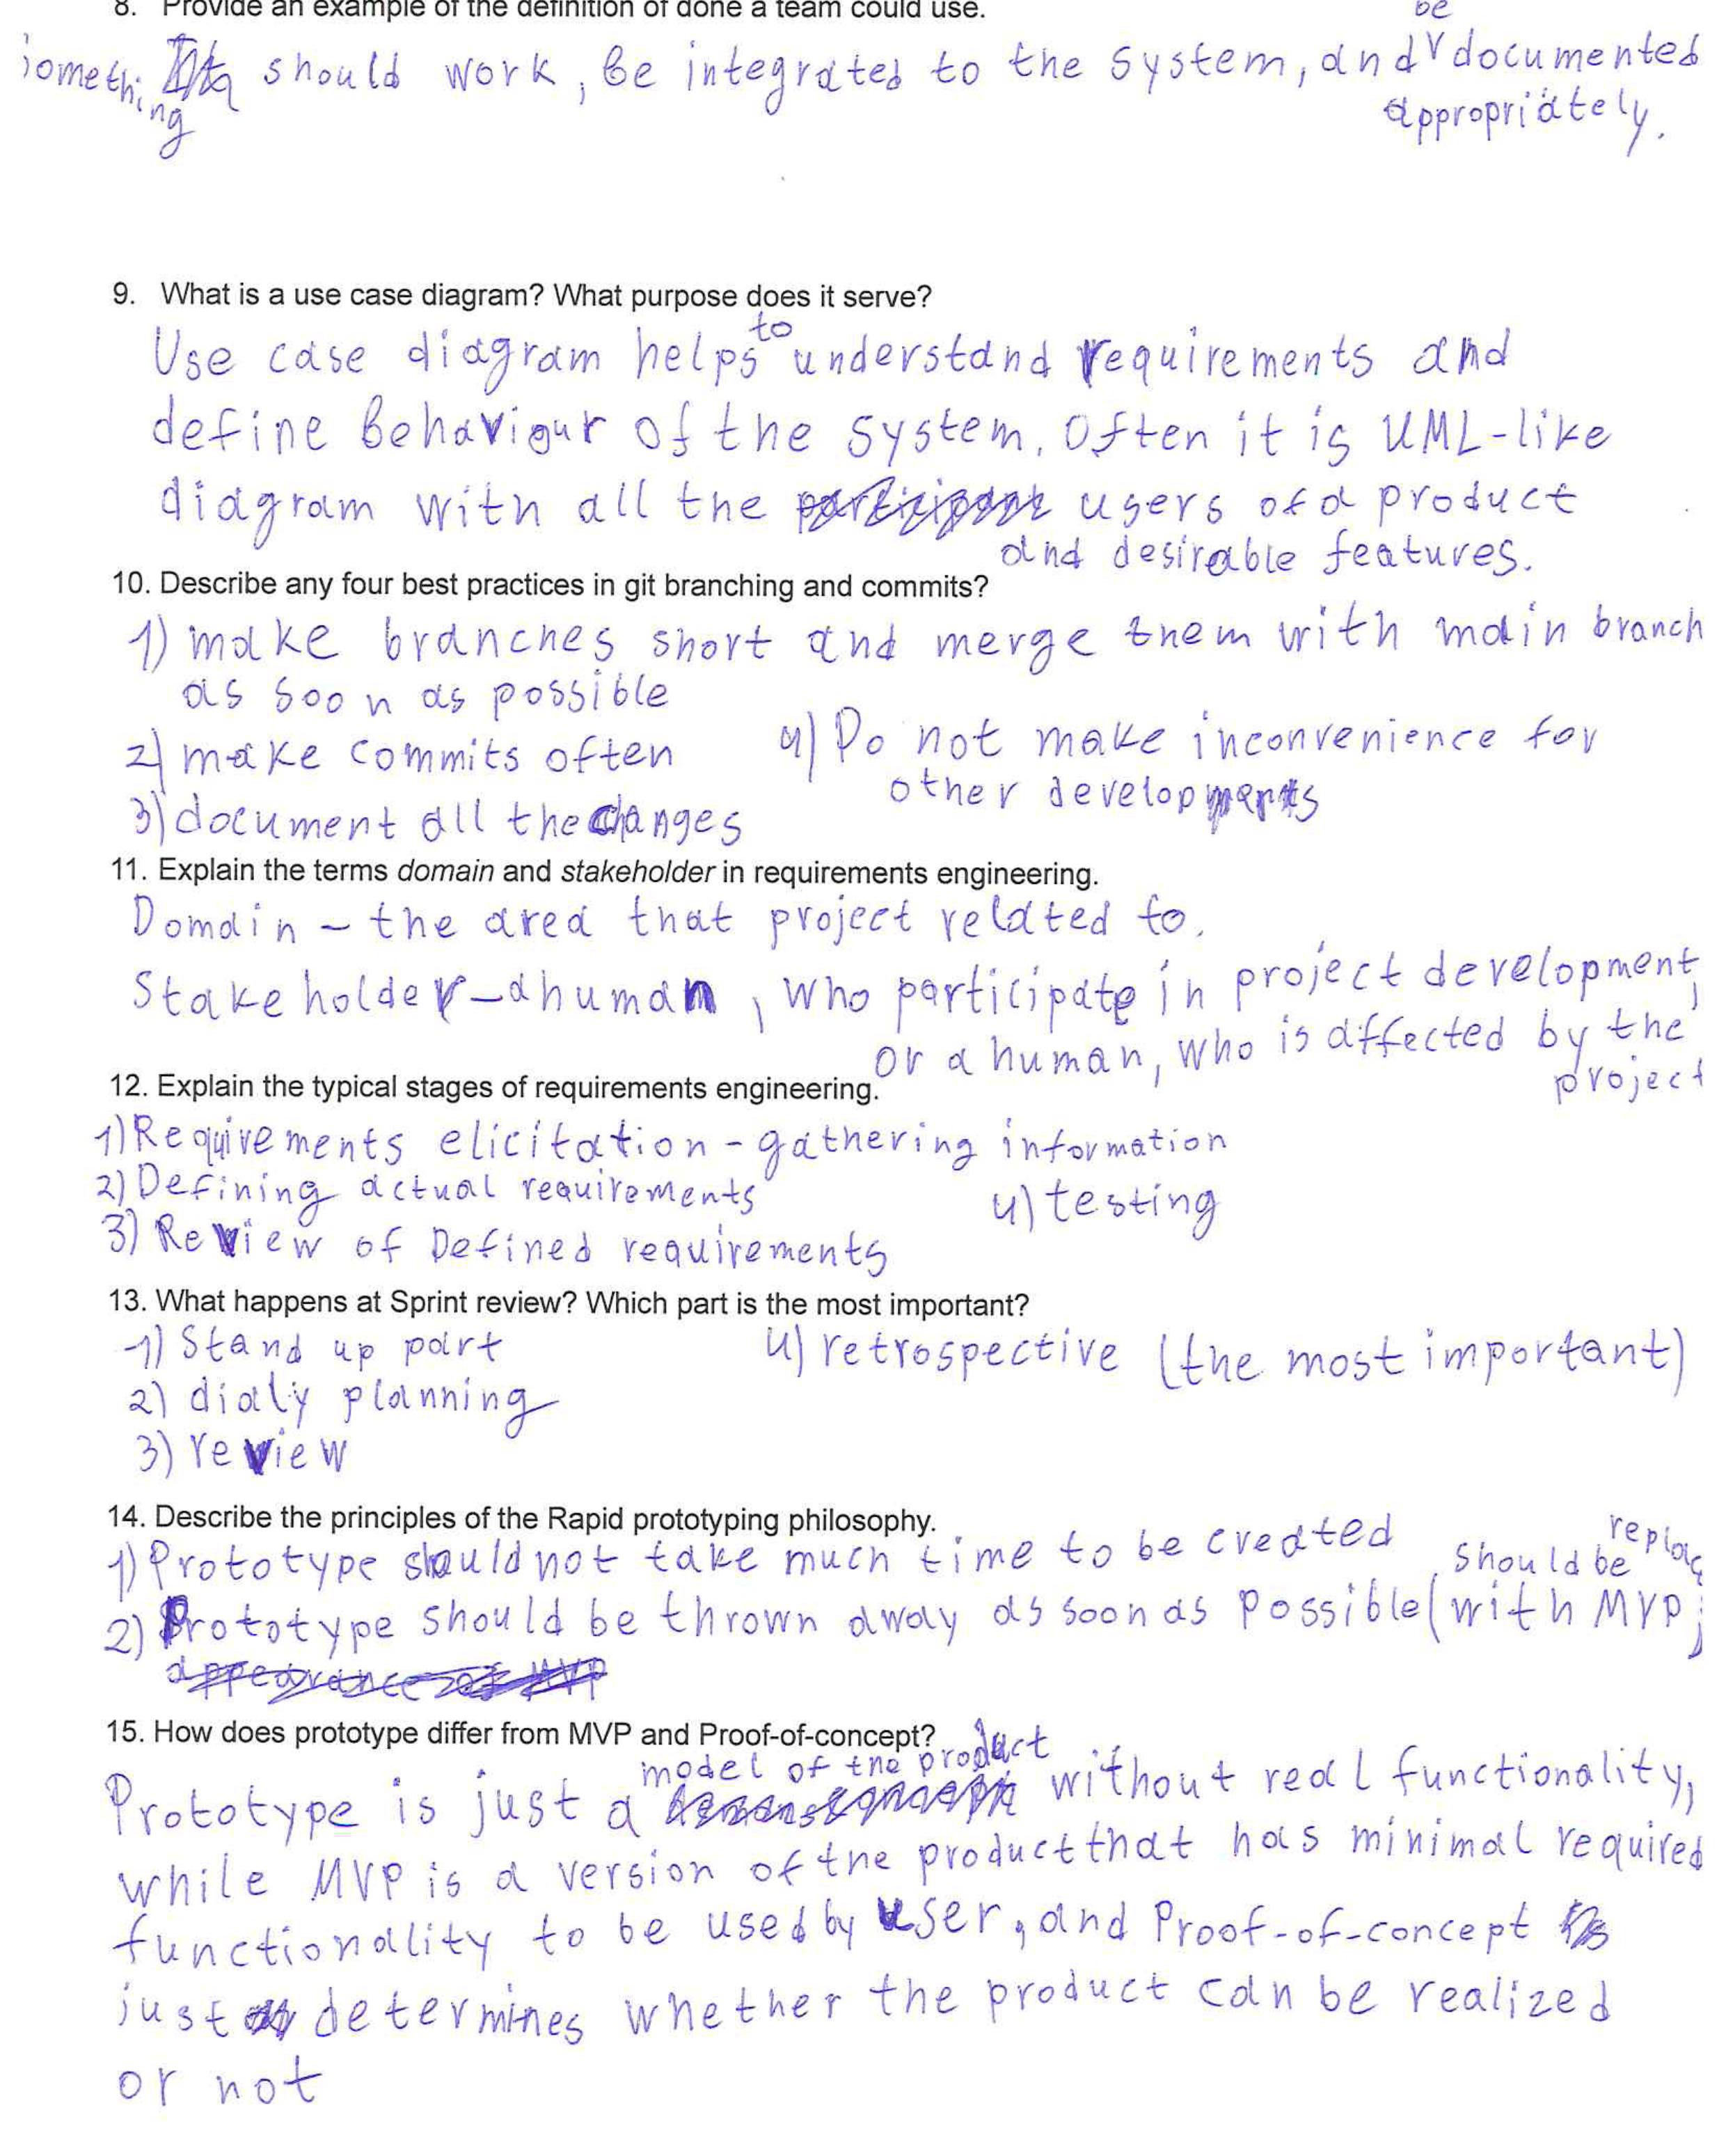 8. Provide an example of the definition of done a team could use.
something should work, be integrated to the system, and be documented
appropriately.
9. What is a use case diagram? What purpose does it serve?
Use case diagram helps to understand requirements and
define behaviour of the system. Often it is UML-like
diagram with all the users of a product
and desirable features.
10. Describe any four best practices in git branching and commits?
1) make branches short and merge them with main branch
as soon as possible
2) make commits often
3) document all the changes
4) Do not make inconvenience for
other developers
11. Explain the terms domain and stakeholder in requirements engineering.
Domain – the area that project related to.
Stakeholder – a human, who participate in project development,
or a human, who is affected by the
project
12. Explain the typical stages of requirements engineering.
1) Requirements elicitation - gathering information
2) Defining actual requirements
3) Review of Defined requirements
4) testing
13. What happens at Sprint review? Which part is the most important?
1) Stand up part
2) dialy planning
3) review
4) retrospective (the most important)
14. Describe the principles of the Rapid prototyping philosophy.
1) Prototype should not take much time to be created
2) Prototype should be thrown away as soon as possible (should be replac
with MVP;
15. How does prototype differ from MVP and Proof-of-concept?
Prototype is just a model of the product without real functionality,
while MVP is a version of the product that has minimal required
functionality to be used by user, and Proof-of-concept
just determines whether the product can be realized
or not